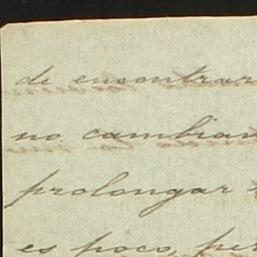 de encontrar
no cambian
prolongar
es poco, per